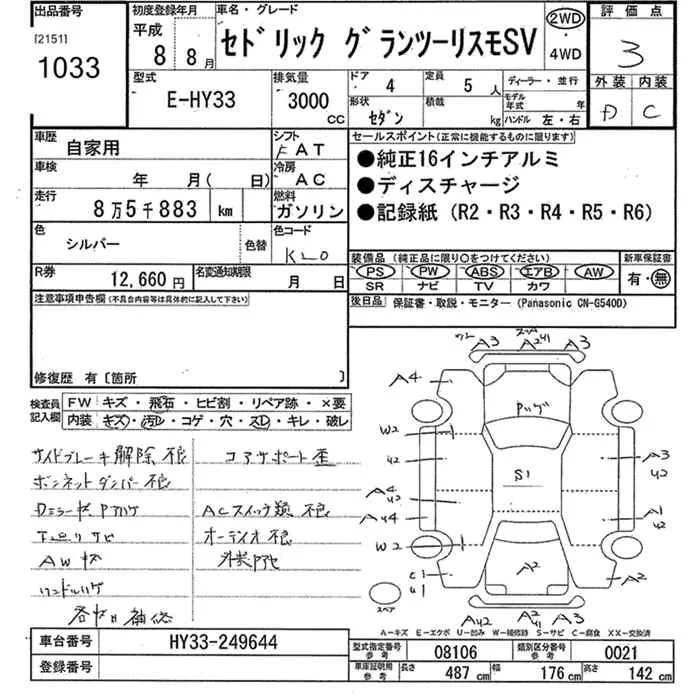 出品番号
[2151]
1033
初度登録年月
平成
8 8月
車名・グレード
セドリック グランツーリスモSV
2WD
・
4WD
評価点
3
外装 内装
D C
型式
E-HY33
排気量
3000
CC
ドア
4
定員
5 人
形状
セダン
積載
kg
ディーラー・並行
モデル年式 年
ハンドル 左・右
車歴
自家用
シフト
FAT
車検
年 月( 日)
冷房
AC
走行
8万5千883 km
燃料
ガソリン
色
シルバー
色替
色コード
KL0
R券
12,660円
名変通知期限
月 日
セールスポイント(正常に機能するものに限ります)
●純正16インチアルミ
●ディスチャージ
●記録紙(R2・R3・R4・R5・R6)
装備品(純正品に限り○をつけてください)
PS PW ABS エアB AW
SR ナビ TV カワ
新車保証書
有・無
後日品 保証書・取説・モニター(Panasonic CN-G540D)
注意事項申告欄(不具合内容等は具体的に記入して下さい)
修復歴 有〔箇所 〕
検査員記入欄
FW キズ・飛石・ヒビ割・リペア跡・×要
内装 キズ・汚レ・コゲ・穴・スレ・キレ・破レ
サイドブレーキ解除不良
コアサポート歪
ボンネットダンパー不良
ACスイッチ類不良
オーディオ不良
下廻リサビ
AWキズ
ハンドルハゲ
A3 A2 U1 A3
A4
W2
U2
S1
A3
U2
A4
U2
A1
U2
A U4
W2
C1
U1
A2
A2
スペア
A U2 A2 U1 A3
A―キズ E―エクボ U―凹み W―補修跡 S―サビ C―腐食 XX―交換済
車台番号 HY33-249644
登録番号
型式指定番号 参考 08106
類別区分番号 参考 0021
車庫証明用 参考
長さ 487 cm
幅 176 cm
高さ 142 cm